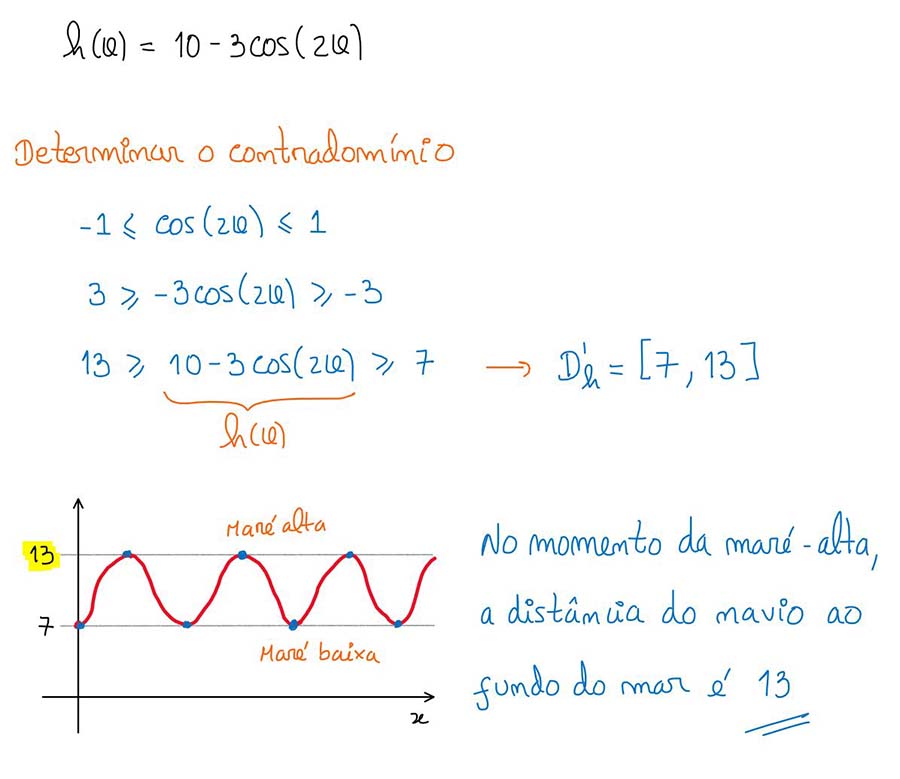 h(φ) = 10 - 3cos(2φ)
Determinar o contradomínio
-1 ⩽ cos(2φ) ⩽ 1
3 ⩾ -3cos(2φ) ⩾ -3
13 ⩾ 10-3cos(2φ) ⩾ 7 → D'h = [7, 13]
h(φ)
Maré alta
13
7
Maré baixa
x
No momento da maré-alta,
a distância do navio ao
fundo do mar é 13